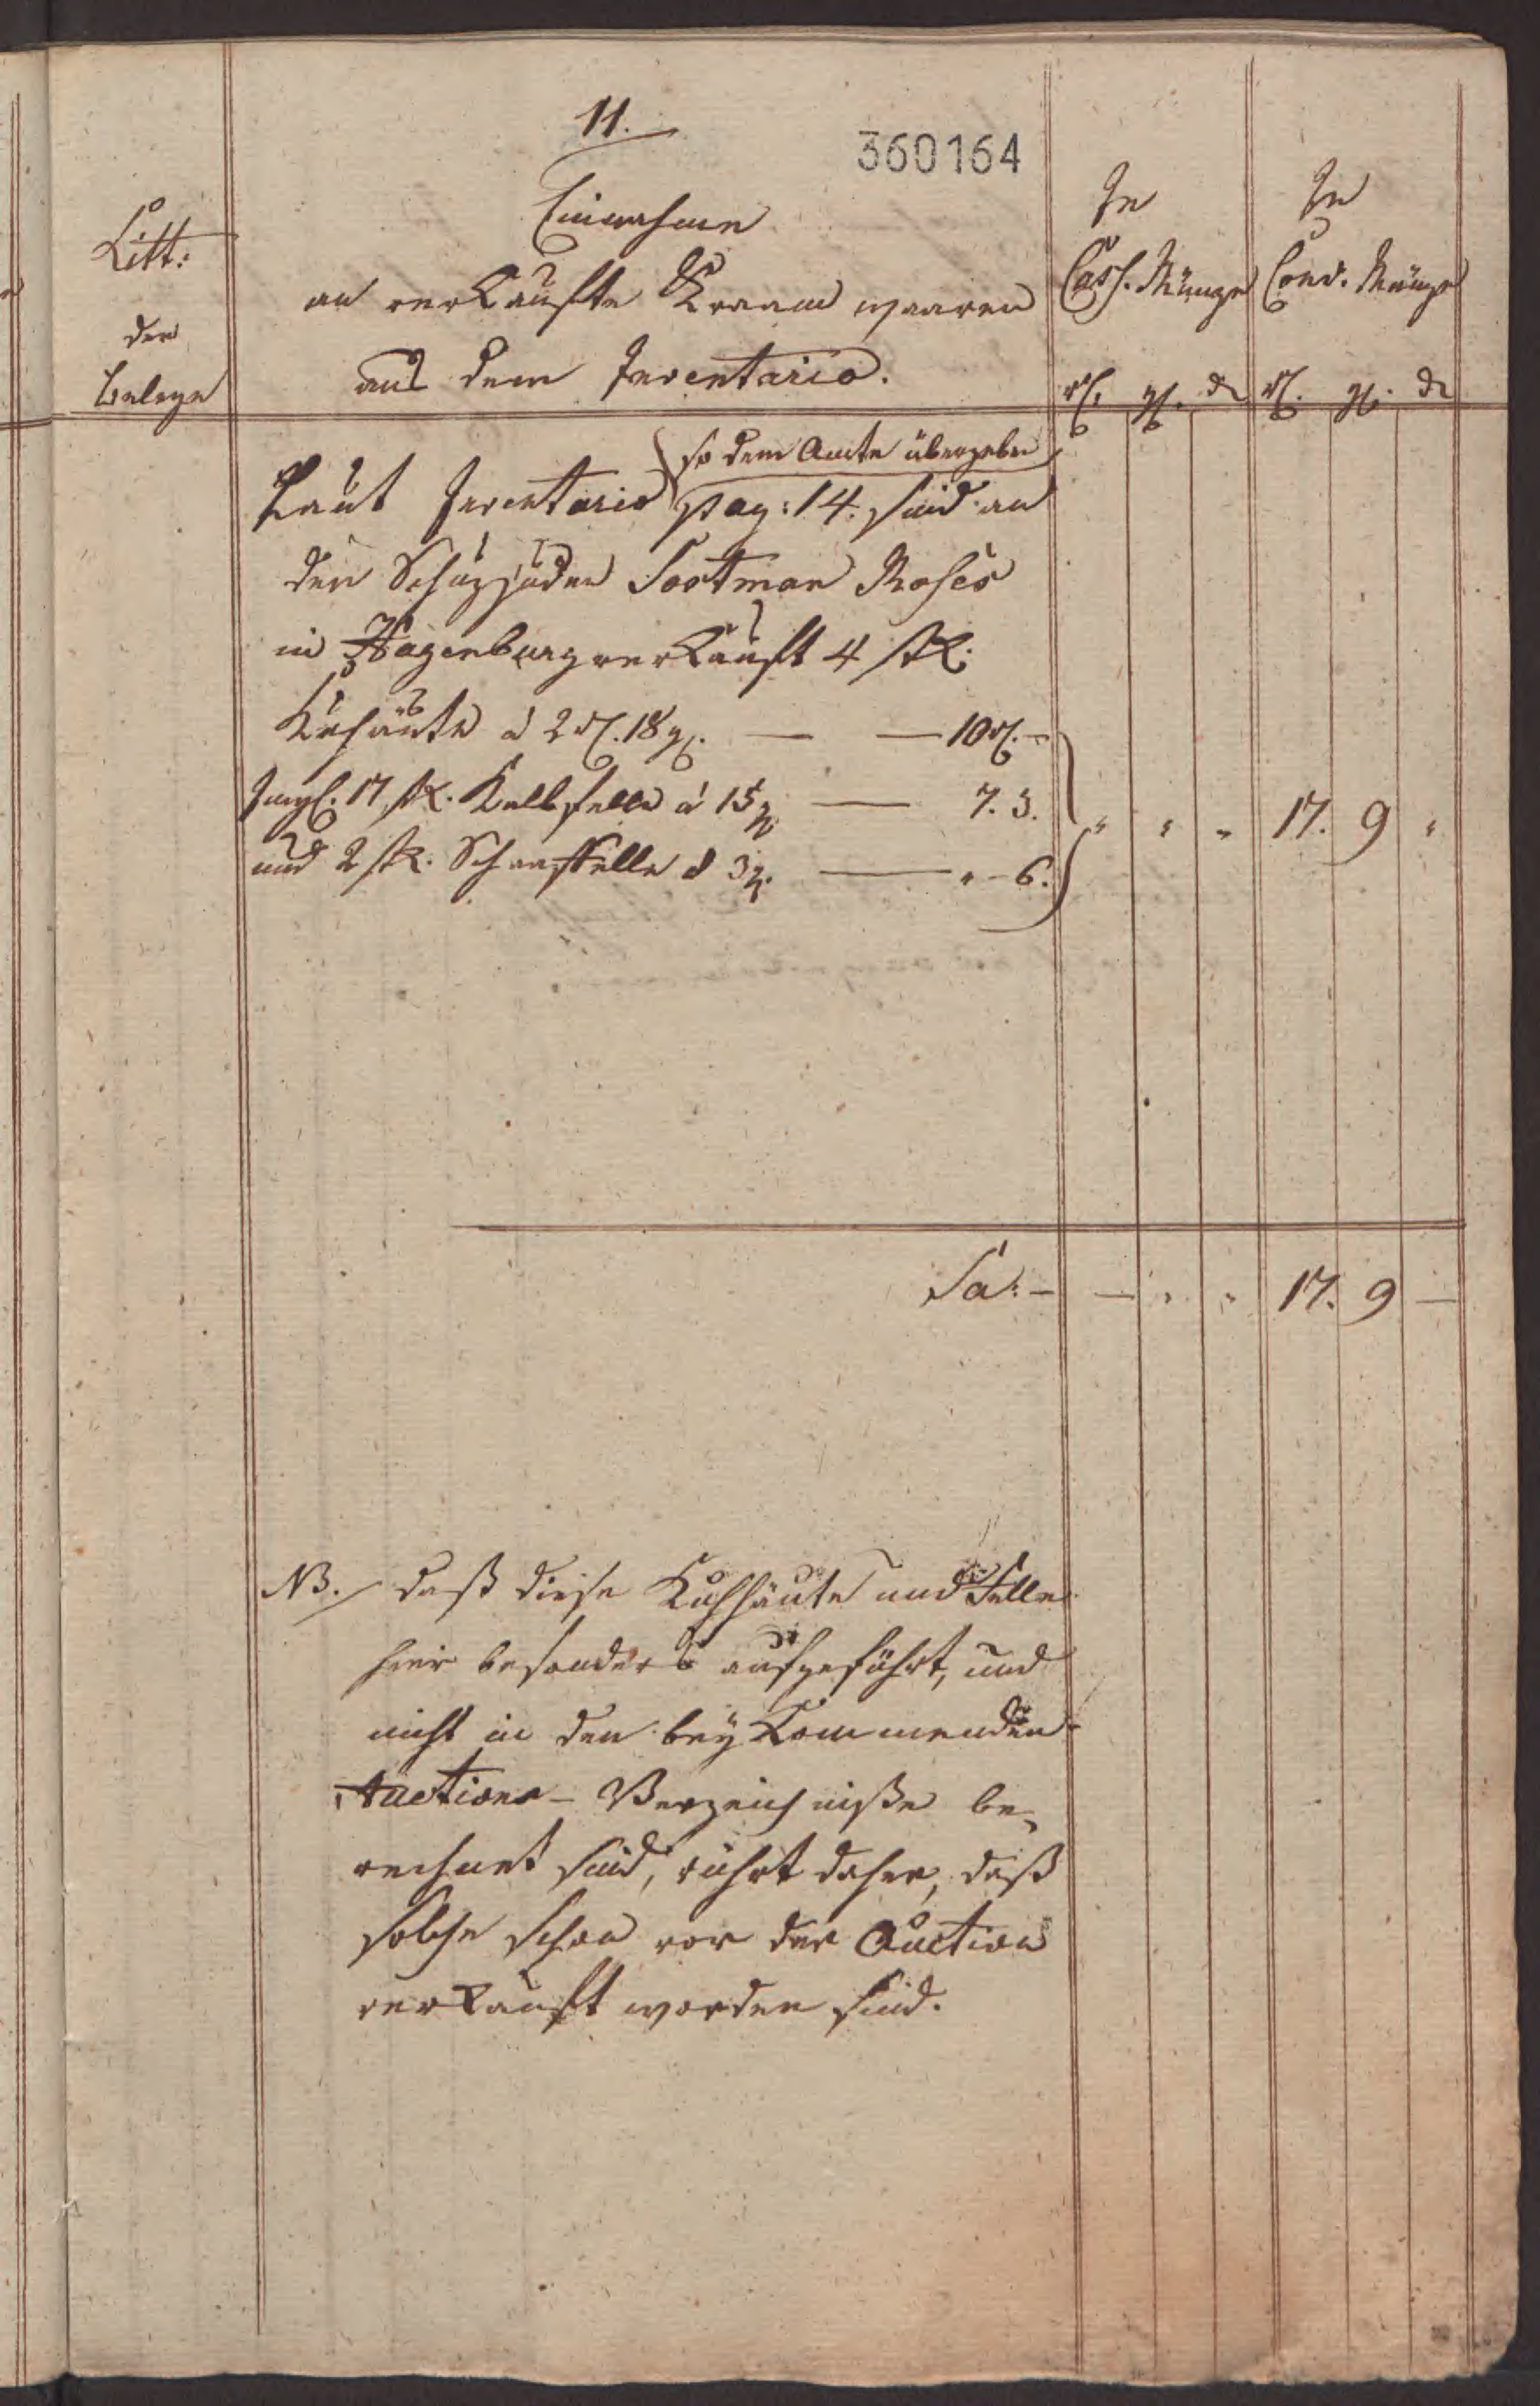 11.
360164
Litt:
der
Belege
Einnahme
an verkaufte Kraam waaren
aus dem Inventario.
In
Cass. Münze
rl. gl. d
In
Conv. Münze
rl. gl. d
so dem Amte übergeben
Laut Inventario pag: 14. sind an
den Schuzjuden Sostman Moses
in Hagenburg verkauft 4 stk.
Kuhäute á 2 rl. 18 gl. — — 10 rl. –
Imgl. 17 stk. Kalbfelle á 15 g. — 7. 3. " " " 17. 9 "
und 2 stk. Schaaffelle á 3 g. — " – 6.
Sa: – — " " 17. 9 —
NB. daß diese Kuhhäute und Felle
hier besonders aufgeführt, und
nicht in den beykommenden
Auctions – Verzeichniße be-
rechnet sind, rührt daher, daß
solche schon vor der Auction
verkauft worden sind.